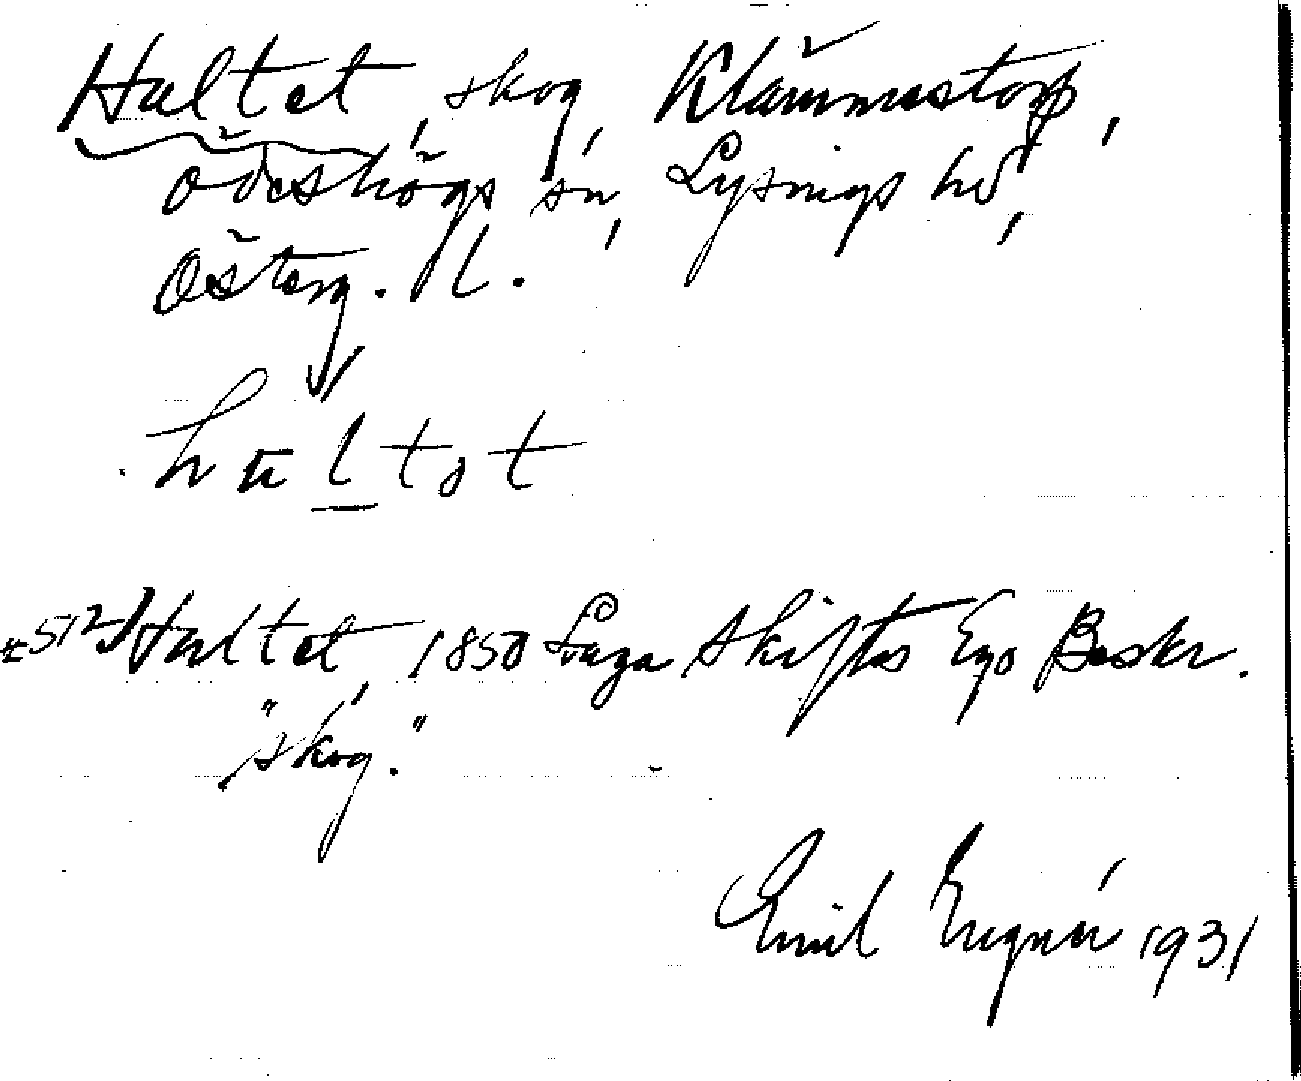 Hultet, skog, Klämmestorp,
Ödeshögs sn, Lysings hd,
Österg. l.
hultət
Hultet, 1850 Laga Skiftes Ego Beskr.
"skog."
Emil Engnér 1931